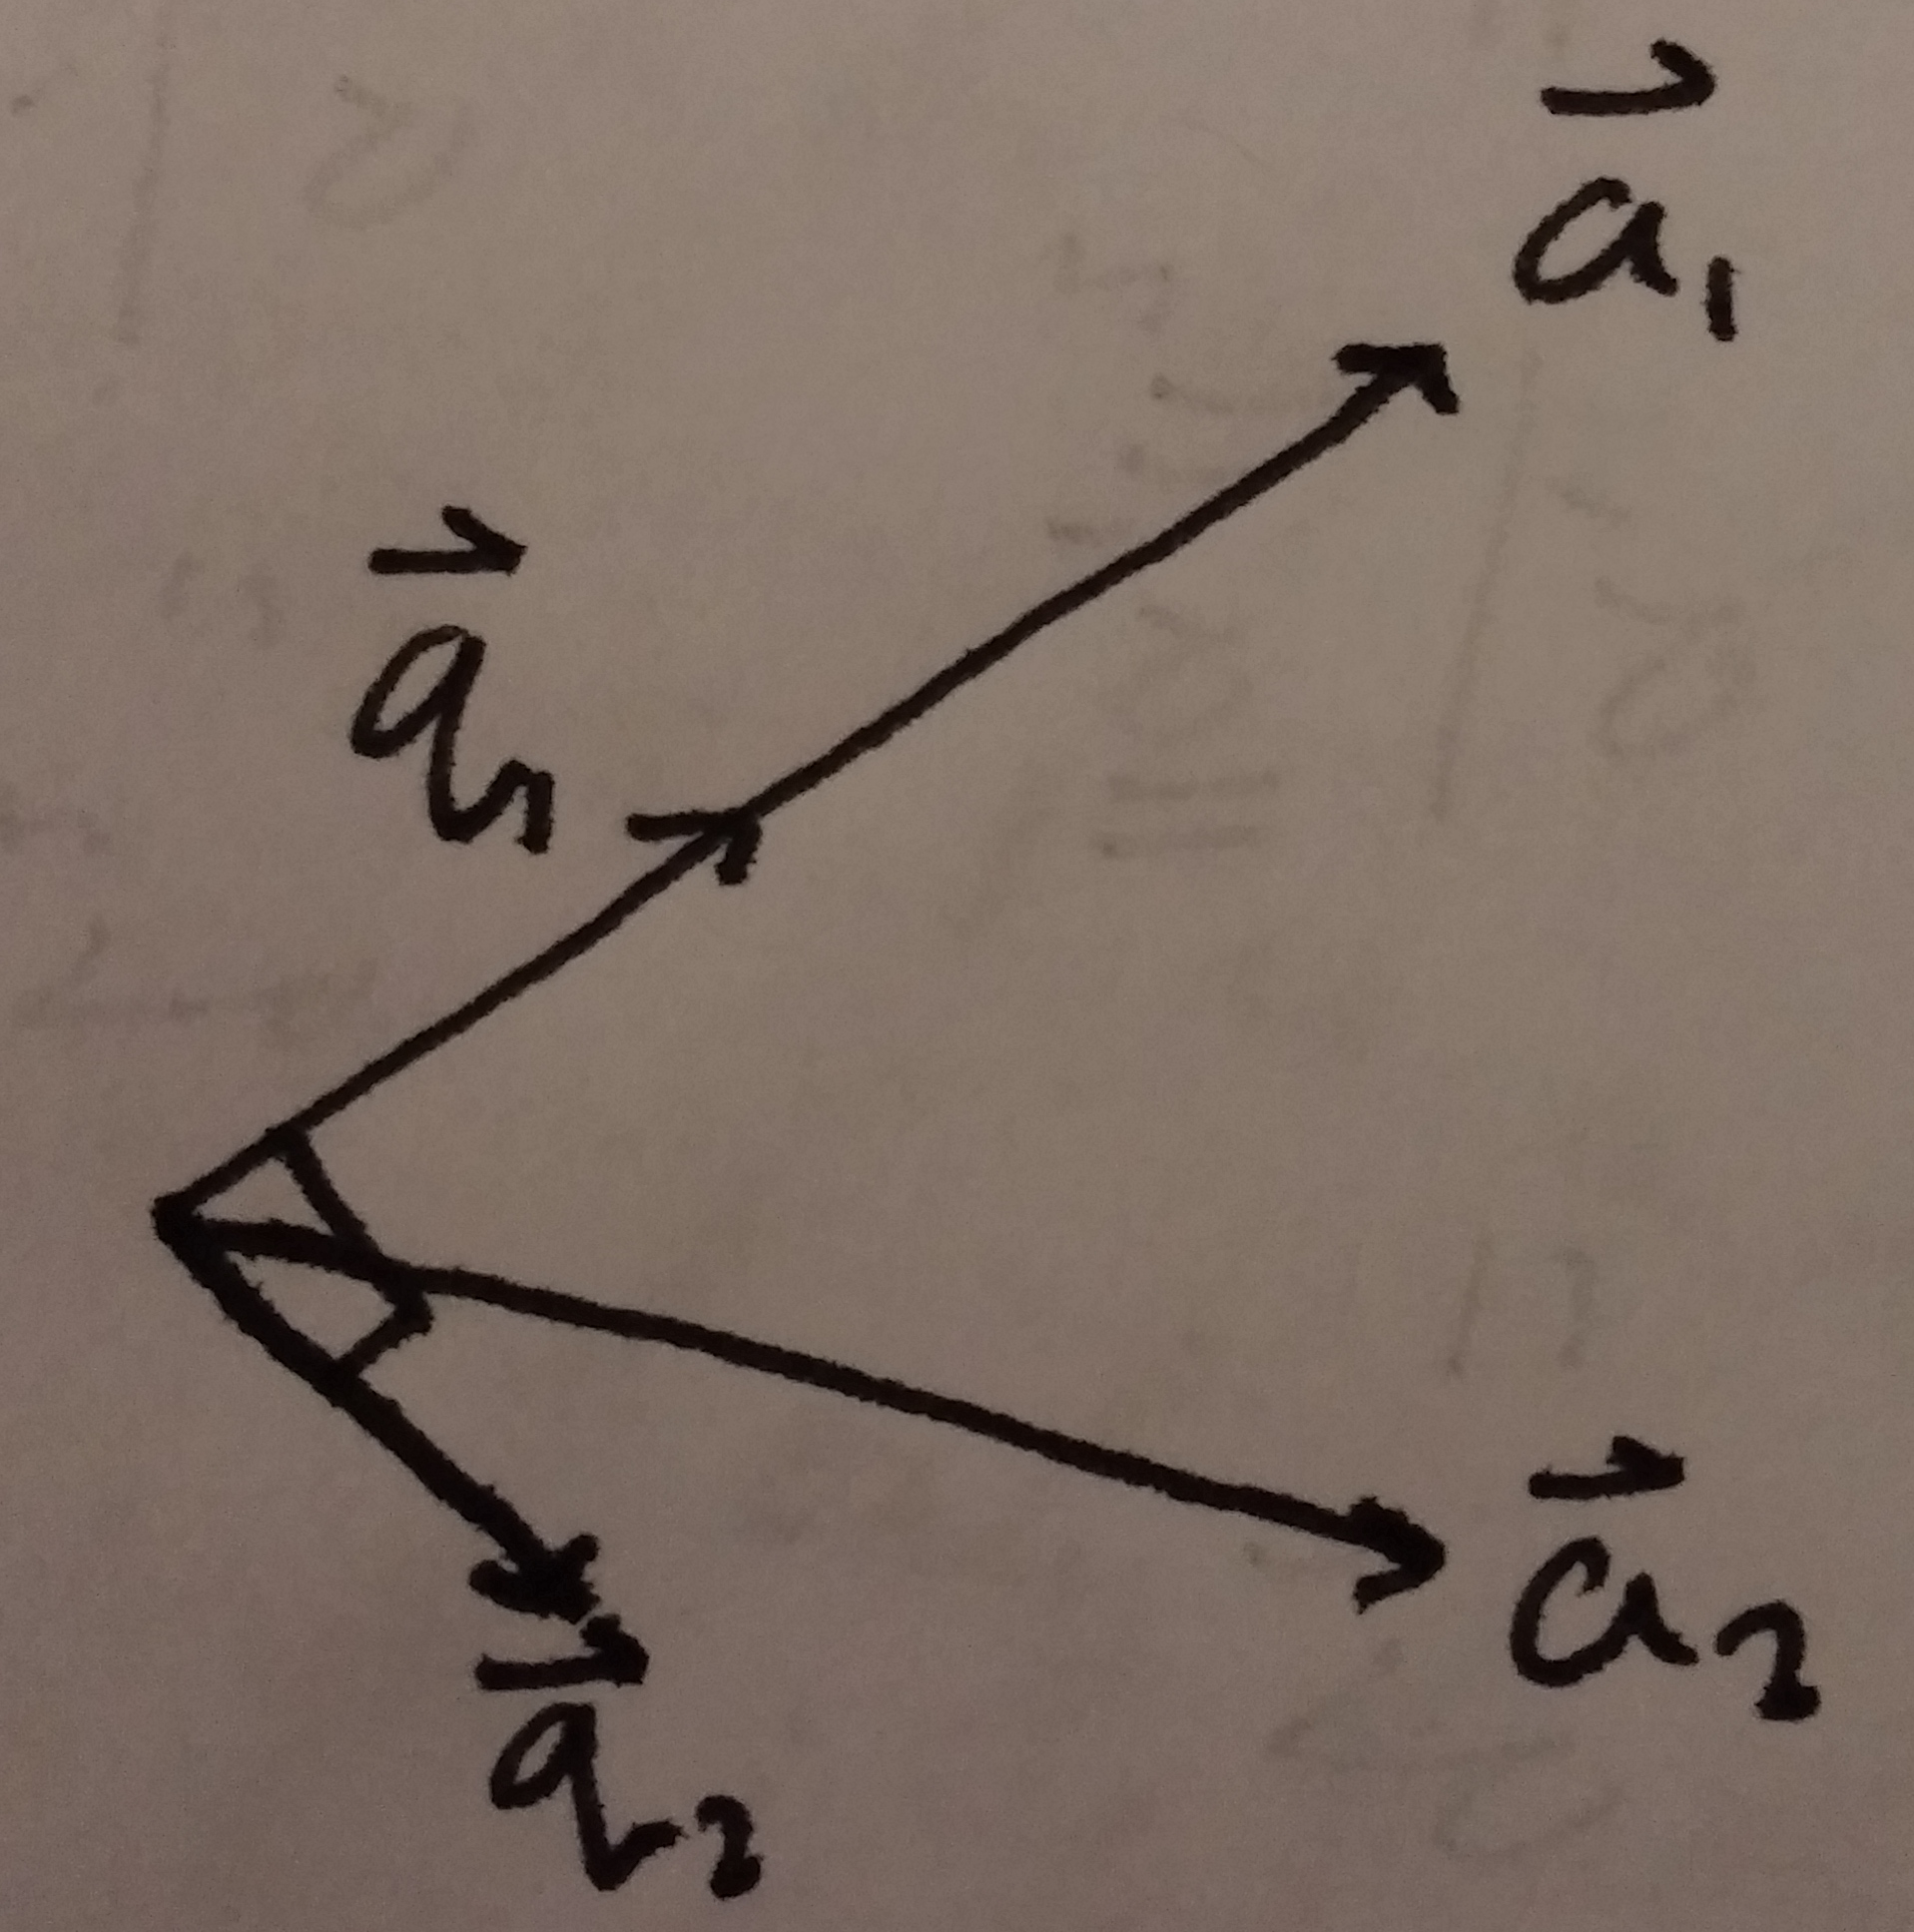 a⃗₁
q⃗₁
a⃗₂
q⃗₂